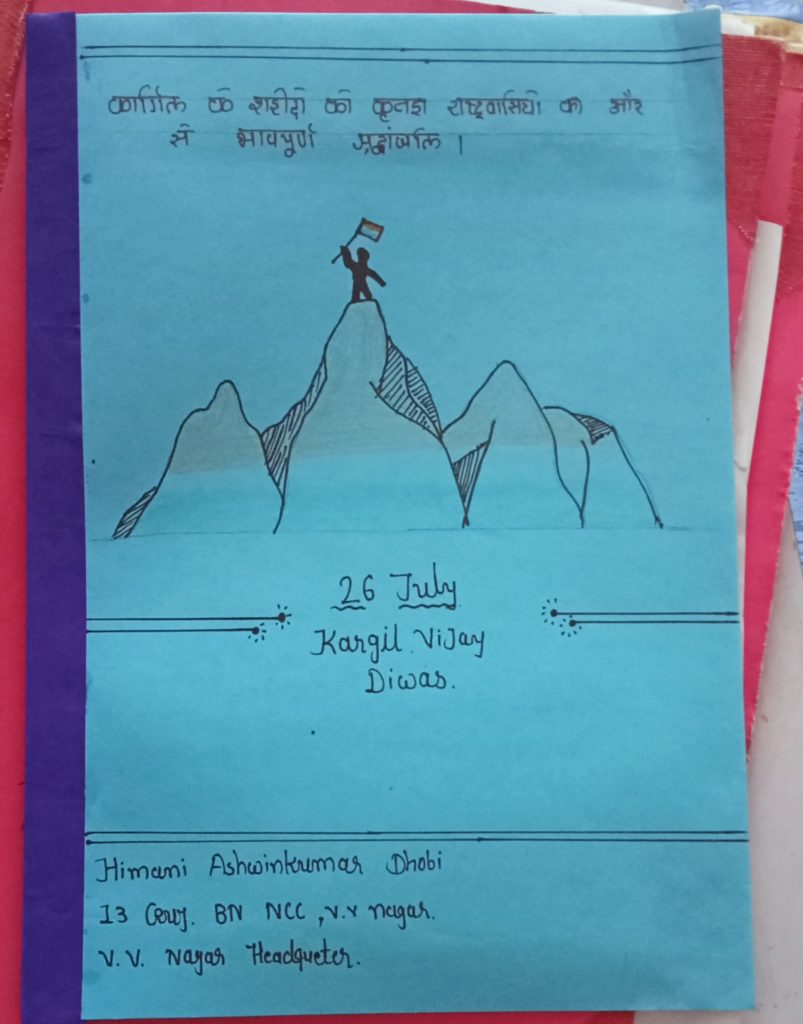 कारगिल के शहीदो को कृतज्ञ राष्ट्रवासियो की और
से भावपूर्ण श्रद्धांजलि ।
26 July
Kargil Vijay
Diwas.
Himani Ashwinkumar Dhobi
13 Guj. BN NCC, V.V nagar.
V.V. Nagar Headqueter.